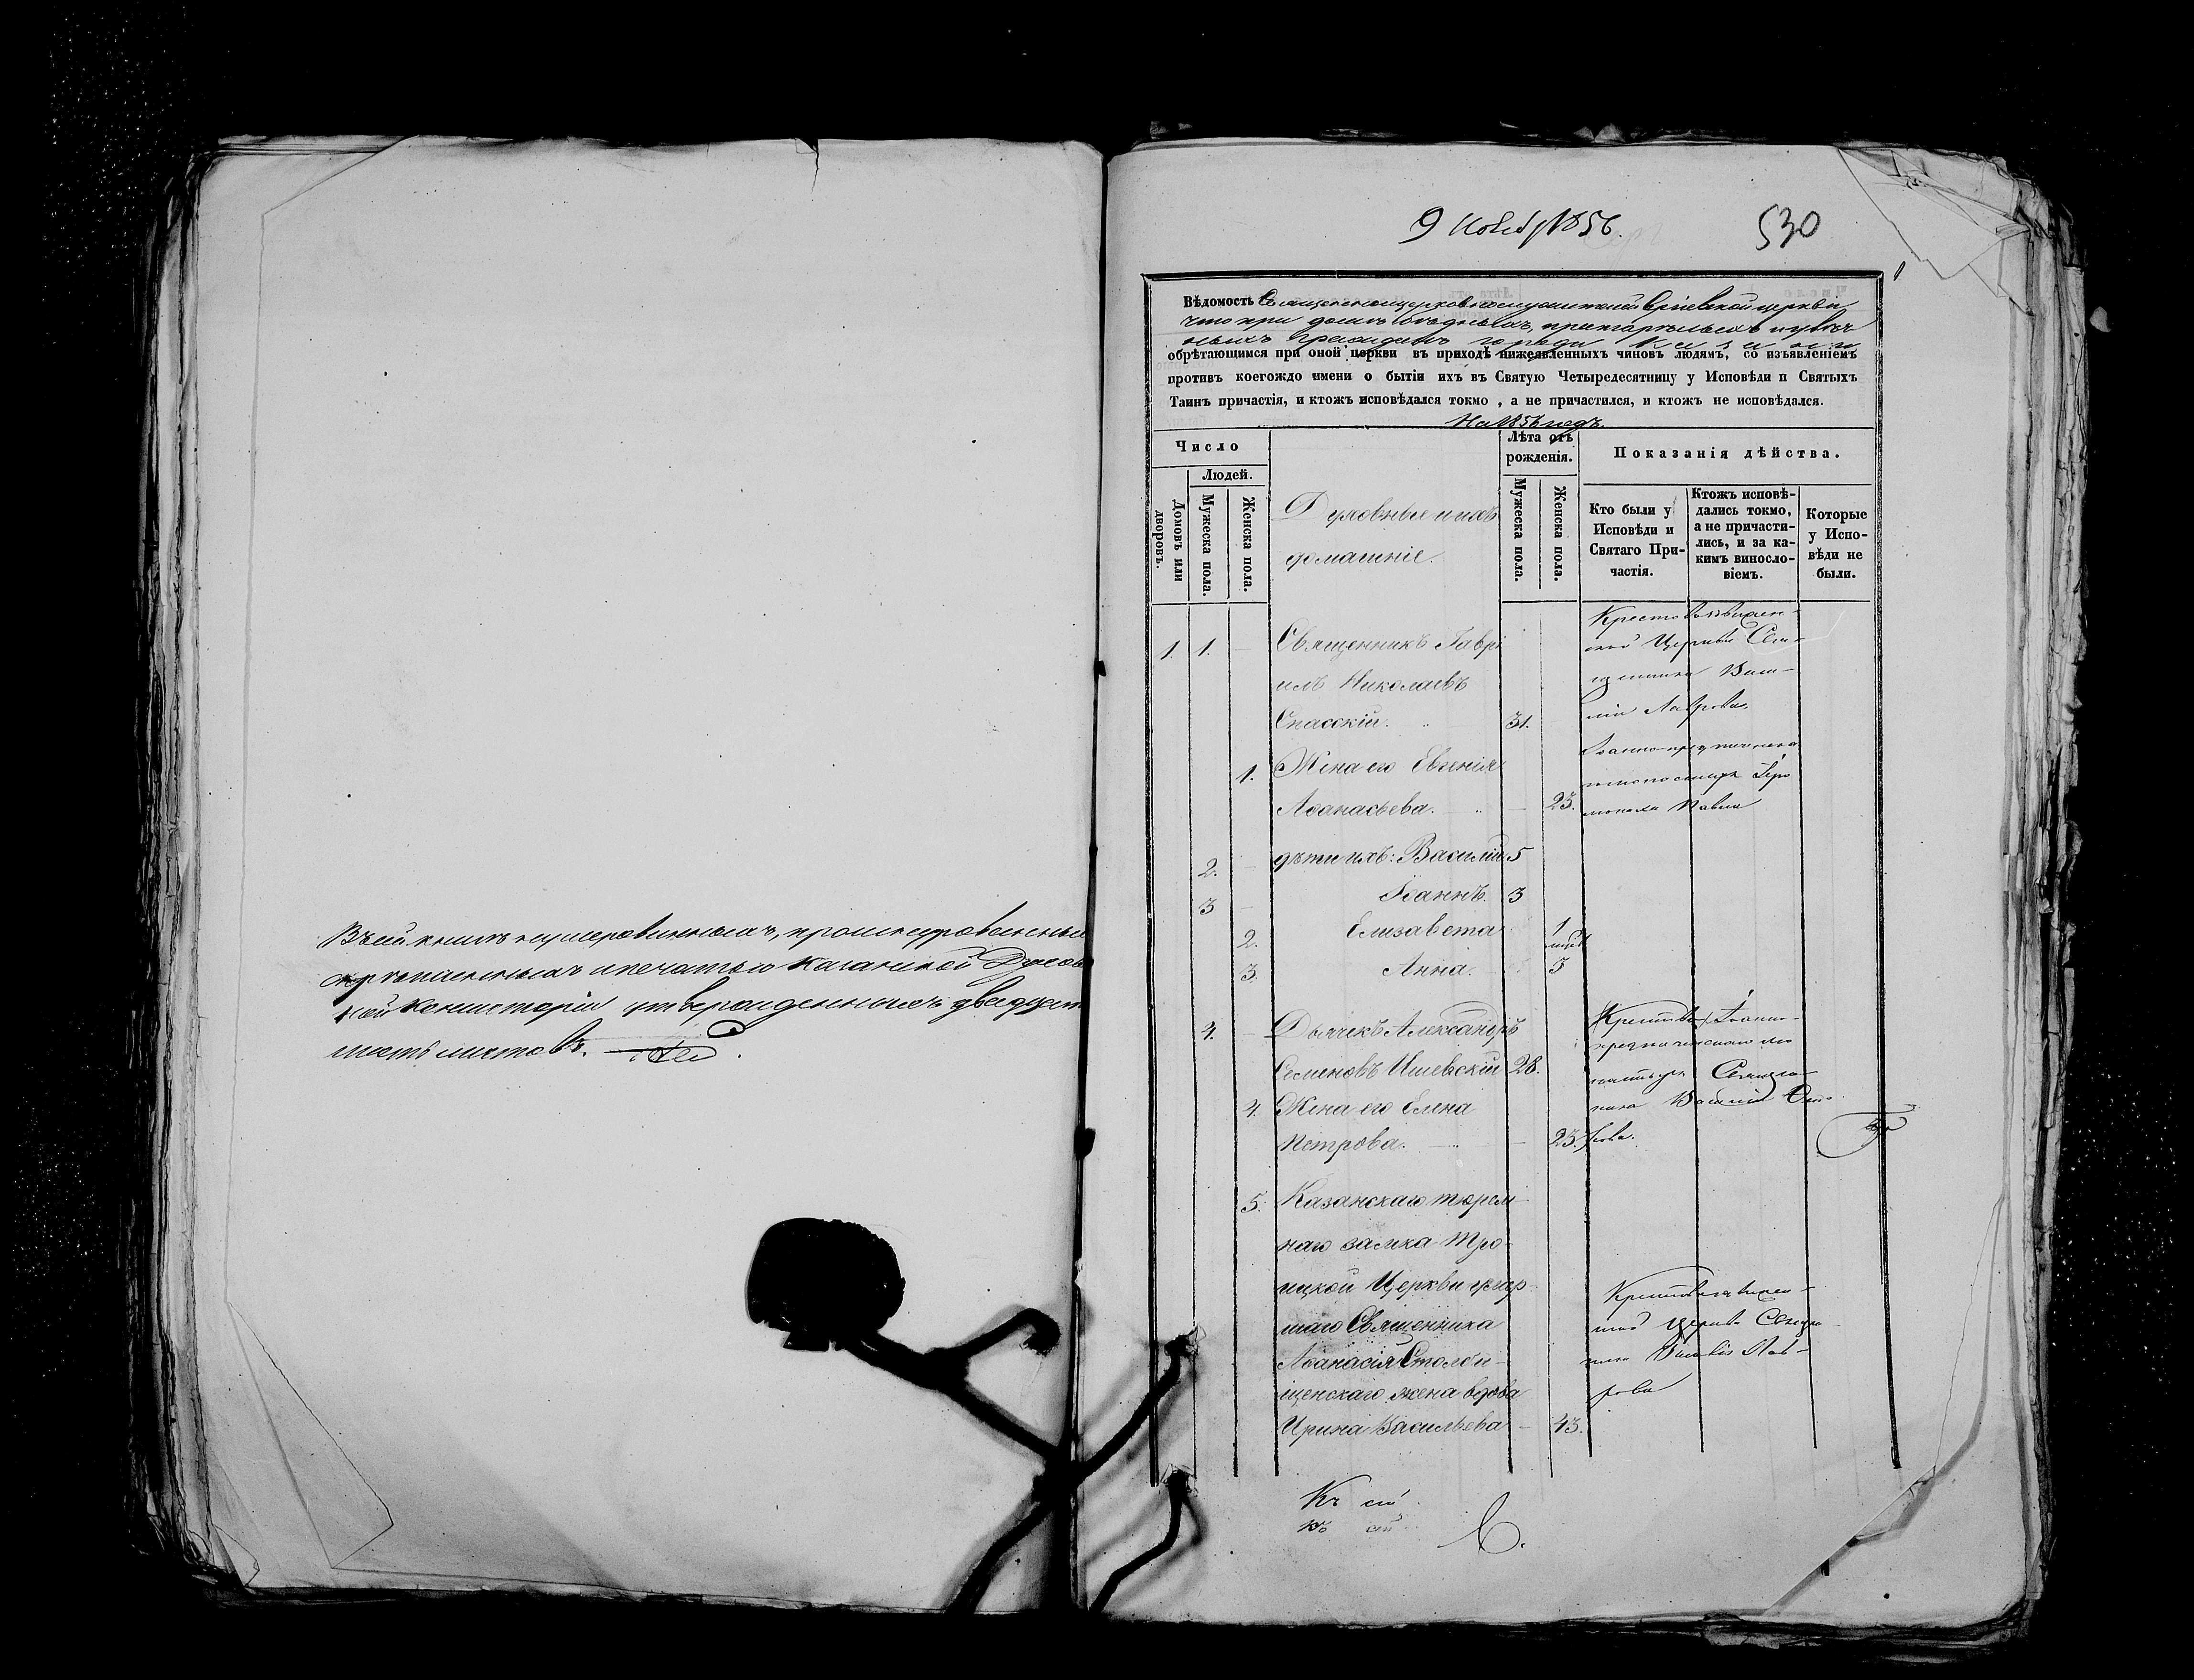 Въ сей книгѣ нумерованныхъ, прошнурованныхъ
скрѣпленныхъ и печатью Казанской Духов
ной Консисторіи утвержденныхъ двадцать
шесть листовъ.
9 Нояб. 1856.
530
Вѣдомость Священноцерковнослужителей церкви
что при домѣ бѣдныхъ, престарѣлыхъ и увѣч
ныхъ гражданъ города Казани
обрѣтающимся при оной церкви въ приходѣ нижеявленныхъ чиновъ людямъ, со изъявленіемъ
противъ коегождо имени о бытіи ихъ въ Святую Четыредесятницу у Исповѣди и Святыхъ
Таинъ причастія, и ктожъ исповѣдался токмо, а не причастился, и ктожъ не исповѣдался.
На 1856 годъ.
Число
Людей.
Домовъ или дворовъ.
Мужеска пола.
Женска пола.
Духовные и ихъ
домашніе.
Лѣта отъ
рожденія.
Мужеска пола.
Женска пола.
Показанія дѣйства.
Кто были у
Исповѣди и
Святаго При-
частія.
Ктожъ исповѣ-
дались токмо,
а не причасти-
лись, и за ка-
кимъ винослo-
віемъ.
Которые
у Испо-
вѣди не
были.
1. 1. Священникъ Гаврі
илъ Николаевъ
Спасскій. 31.
Крестовоздвижен-
ской Церкви Свя-
щенника Васи-
лія Лаврова.
1. Жена его Евгенія
Аѳанасьева. 23.
Іоанно-предтеченска
монастыря Іеро
монаха Павла
2. дѣти ихъ: Василій 5
3 Іоаннъ. 3
2. Елизавета 1
3. Анна. 3
4. Дьячекъ Александръ
Семеновъ Ишевскій 28.
4. Жена его Елена
Петрова. 23.
Іоанно-
предтеченскаго мо
настыря Священ
ника Василія
5. Казанскаго тюрем
наго замка Тро-
ицкой Церкви умер
шаго Священника
Аѳанасія Столби-
щенскаго жена вдова
Ирина Васильева 43.
Крестовоздвижен-
ской Церкви Священ-
ника Василія Лав-
рова